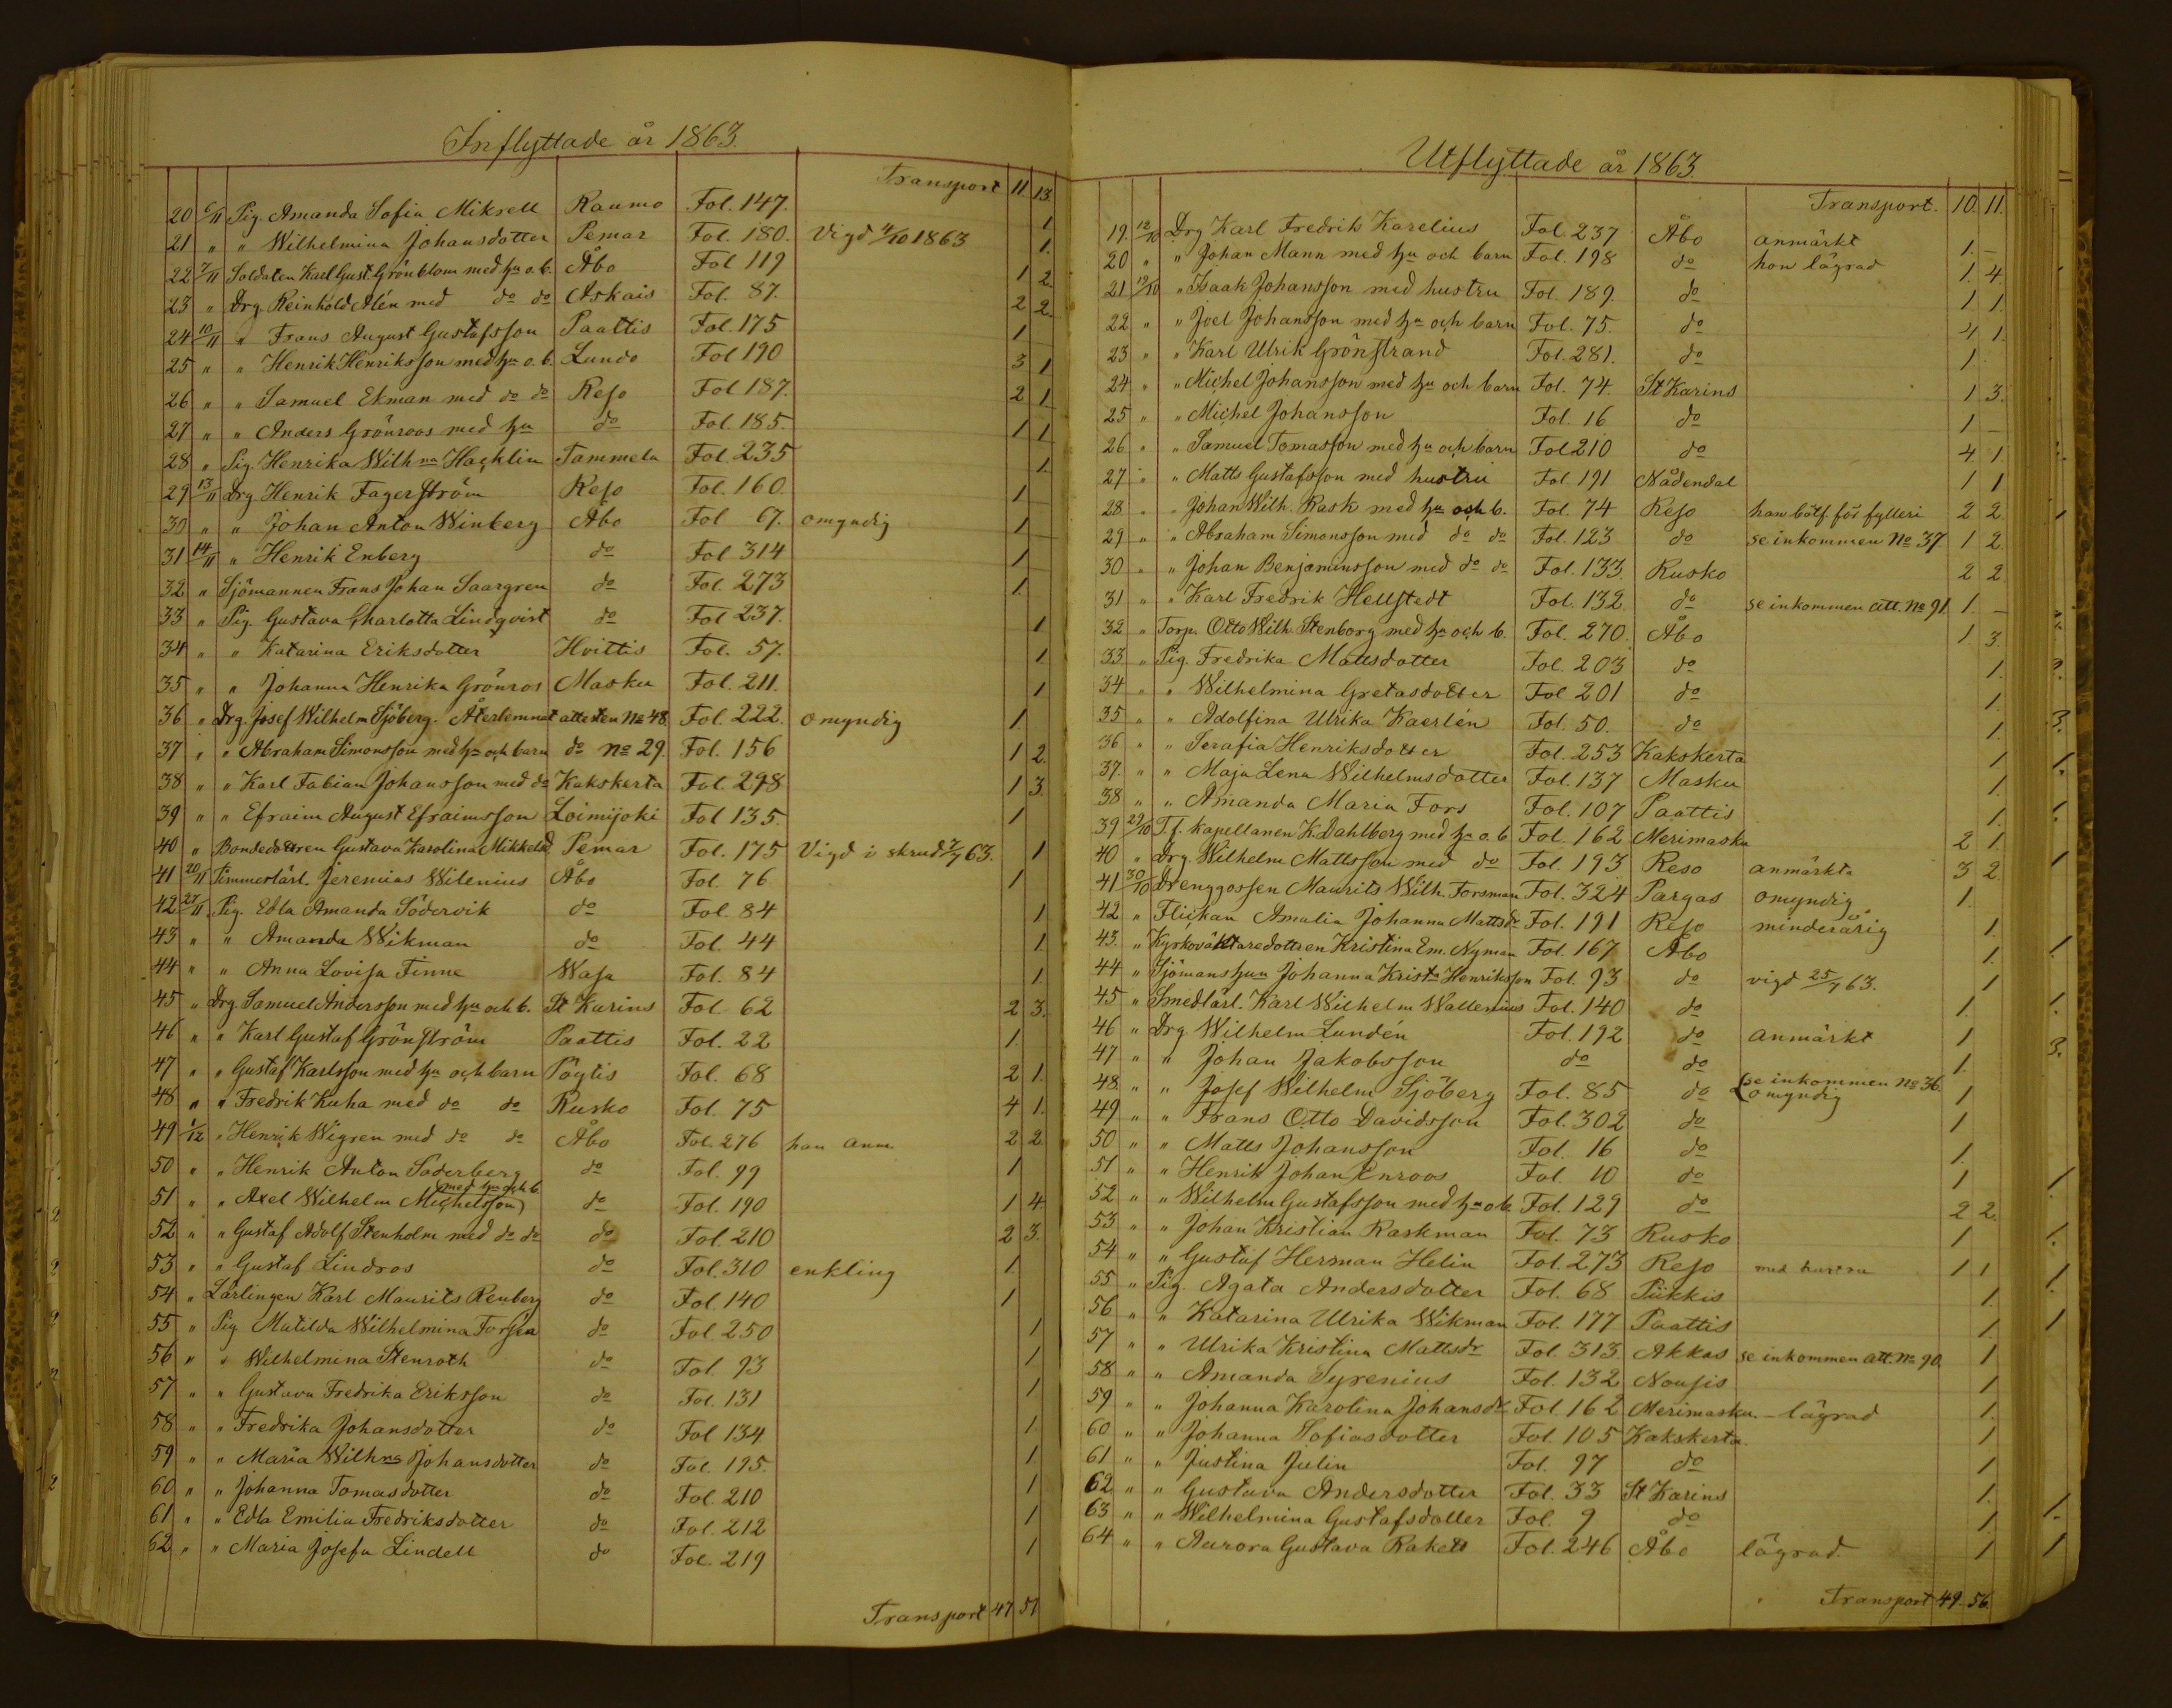 Inflyttade år 1863.
Transport 11 13.
20 6/11 Pig. Amanda Sofia Miksell Raumo Fol. 147. 1
21 " " Wilhelmina Johansdotter Pemar Fol. 180. Vigd 4/10 1863 1.
22 7/11 Soldaten Karl Gust. Grönblom med hu o. b. Åbo Fol 119 1 2.
23 " Drg. Reinhold Alén med do do Askais Fol. 87. 2 2.
24 10/11 " Frans August Gustafsson Paattis Fol. 175 1
25 " " Henrik Henriksson med hu o. b. Lundo Fol 190 3 1
26 " " Samuel Ekman med do do Reso Fol 187. 2 1.
27 " " Anders Grönroos med hu do Fol. 185. 1 1
28 " Pig. Henrika Wilhna Hachlin Tammela Fol. 235 1.
29 13/11 Drg Henrik Fagerström Reso Fol. 160. 1
30 " " Johan Anton Winberg Åbo Fol 67. omyndig 1
31 14/11 " Henrik Enberg do Fol 314 1
32 " Sjömannen Frans Johan Saargren do Fol. 273 1
33 " Pig. Gustava Charlotta Lindqvist do Fol 237. 1
34 " " Katarina Eriksdotter Hvittis Fol. 57. 1.
35 " " Johanna Henrika Grönros Masku Fol. 211. 1
36 " Drg. Josef Wilhelm Sjöberg. Återlemnat attesten No 48. Fol. 222. omyndig 1.
37 " " Abraham Simonsson med hu och barn do No 29. Fol. 156 1 2.
38 " " Karl Fabian Johansson med do Kakskerta Fol. 298 1 3
39 " " Efraim August Efraimsson Loimijoki Fol 135. 1
40 " Bondedottren Gustava Karolina Mikkelsd Pemar Fol. 175 Vigd i skrud 2/7 63. 1
41 20/11 Timmerlärl. Jeremias Wilenius Åbo Fol. 76 1
42 27/11 Pig. Edla Amanda Södervik do Fol. 84 1
43 " " Amanda Wikman do Fol. 44 1.
44 " " Anna Lovisa Finne Wasa Fol. 84 1.
45 " Drg. Samuel Andersson med hu och b. St Karins Fol. 62 2 3.
46 " " Karl Gustaf Grönström Paattis Fol. 22 1
47 " " Gustaf Karlsson med hu och barn Pöytis Fol. 68 2 1.
48 " " Fredrik Kuha med do do Rusko Fol. 75 4 1.
49 1/12 " Henrik Wigren med do do Åbo Fol. 276 han anm. 2 2
50 " " Henrik Anton Söderberg do Fol. 99 1
51 " " Axel Wilhelm Michelsson (med hu och b. do Fol. 190 1 4
52 " " Gustaf Adolf Stenholm med do do do Fol. 210 2 3.
53 " " Gustaf Lindros do Fol. 310 enkling 1
54 " Lärlingen Karl Maurits Renberg do Fol. 140 1
55 " Pig Matilda Wilhelmina Forsén do Fol. 250 1
56 " " Wilhelmina Stenroth do Fol. 93 1
57 " " Gustava Fredrika Eriksson do Fol. 131 1
58 " " Fredrika Johansdotter do Fol 134 1.
59 " " Maria Wilhna Johansdotter do Fol. 195. 1
60 " " Johanna Tomasdotter do Fol. 210 1
61 " " Edla Emilia Fredriksdotter do Fol. 212 1
62 " " Maria Josefa Lindell do Fol. 219 1
Transport 47 51
Utflyttade år 1863.
Transport. 10. 11.
19. 12/10 Drg Karl Fredrik Karelius Fol. 237 Åbo anmärkt 1. –
20 " " Johan Mann med hu och barn Fol. 198 do hon lägrad 1. 4.
21 " Isaak Johansson med hustru Fol. 189. do 1 1.
22 " " Joel Johansson med hu och barn Fol. 75. do 4 1.
23 " " Karl Ulrik Grönstrand Fol. 281. do 1.
24 " " Michel Johansson med hu och barn Fol. 74. St Karins 1 3.
25 " " Michel Johansson Fol. 16 do 1 –
26 " " Samuel Tomasson med hu och barn Fol 210 do 4. 1
27 " " Matts Gustafsson med hustru Fol. 191 Nådendal 1 1
28 " " Johan Wilh. Rask med hu och b. Fol. 74 Reso han bötf. för fylleri 2 2.
29 " " Abraham Simonsson med do do Fol. 123 do se inkommen No 37. 1 2.
30 " " Johan Benjaminsson med do do Fol. 133. Rusko 2 2
31 " " Karl Fredrik Hellstedt Fol. 132. do se inkommen att. No 91. 1. –
32 " Torp. Otto Wilh. Stenborg med hu och b. Fol. 270. Åbo 1 3.
33 " Pig. Fredrika Mattsdotter Fol. 203 do 1.
34 " " Wilhelmina Gretasdotter Fol 201 do 1.
35 " " Adolfina Ulrika Kaerlén Fol. 50. do 1.
36 " " Serafia Henriksdotter Fol. 253 Kakskerta 1
37. " " Maja Lena Wilhelmsdotter Fol. 137 Masku 1.
38 " " Amanda Maria Fors Fol. 107 Paattis 1.
39 29/10 T.f. Kapellanen K. Dahlberg med hu o. b Fol. 162 Merimasku 2 1
40 " Drg. Wilhelm Mattsson med do Fol. 193 Reso anmärkta 3 2.
41 30/10 Drenggossen Maurits Wilh. Forsman Fol. 324 Pargas omyndig 1.
42 " Flickan Amalia Johanna Mattsdr Fol. 191 Reso minderårig 1.
43. " Kyrkoväktaredottren Kristina Em. Nyman Fol. 167 Åbo 1.
44 " Sjömanshun Johanna Krista Henriksson Fol. 93 do vigd 25/7 63. 1
45 " Smedlärl. Karl Wilhelm Wallenius Fol. 140 do 1.
46 " Drg Wilhelm Lundén Fol. 192 do anmärkt 1
47 " " Johan Jakobsson do do 1.
48. " " Josef Wilhelm Sjöberg Fol. 85 do (se inkommen No 36. omyndig 1
49 " " Frans Otto Davidsson Fol. 302 do 1
50 " " Matts Johansson Fol. 16 do 1.
51 " " Henrik Johan Enroos Fol. 10 do 1
52 " " Wilhelm Gustafsson med hu o b. Fol. 129 do 2 2.
53 " " Johan Kristian Raskman Fol. 73 Rusko 1
54 " " Gustaf Herman Helin Fol. 273 Reso med hustru 1 1
55 " Pig. Agata Andersdotter Fol. 68 Piikkis 1.
56 " " Katarina Ulrika Wikman Fol. 177 Paattis 1.
57 " " Ulrika Kristina Mattsdr Fol. 313. Akkas se inkommen att. No 90. 1
58 " " Amanda Syrenius Fol. 132 Nousis 1
59 " " Johanna Karolina Johansdr Fol. 162 Merimasku. – lägrad 1.
60 " " Johanna Sofiasdotter Fol. 105 Kakskerta. 1
61 " " Justina Julin Fol. 97 do 1
62 " " Gustava Andersdotter Fol. 33 St Karins 1.
63 " " Wilhelmina Gustafsdotter Fol. 9 do 1
64 " " Aurora Gustava Rakett Fol. 246 Åbo lägrad. 1
Transport 49 56.